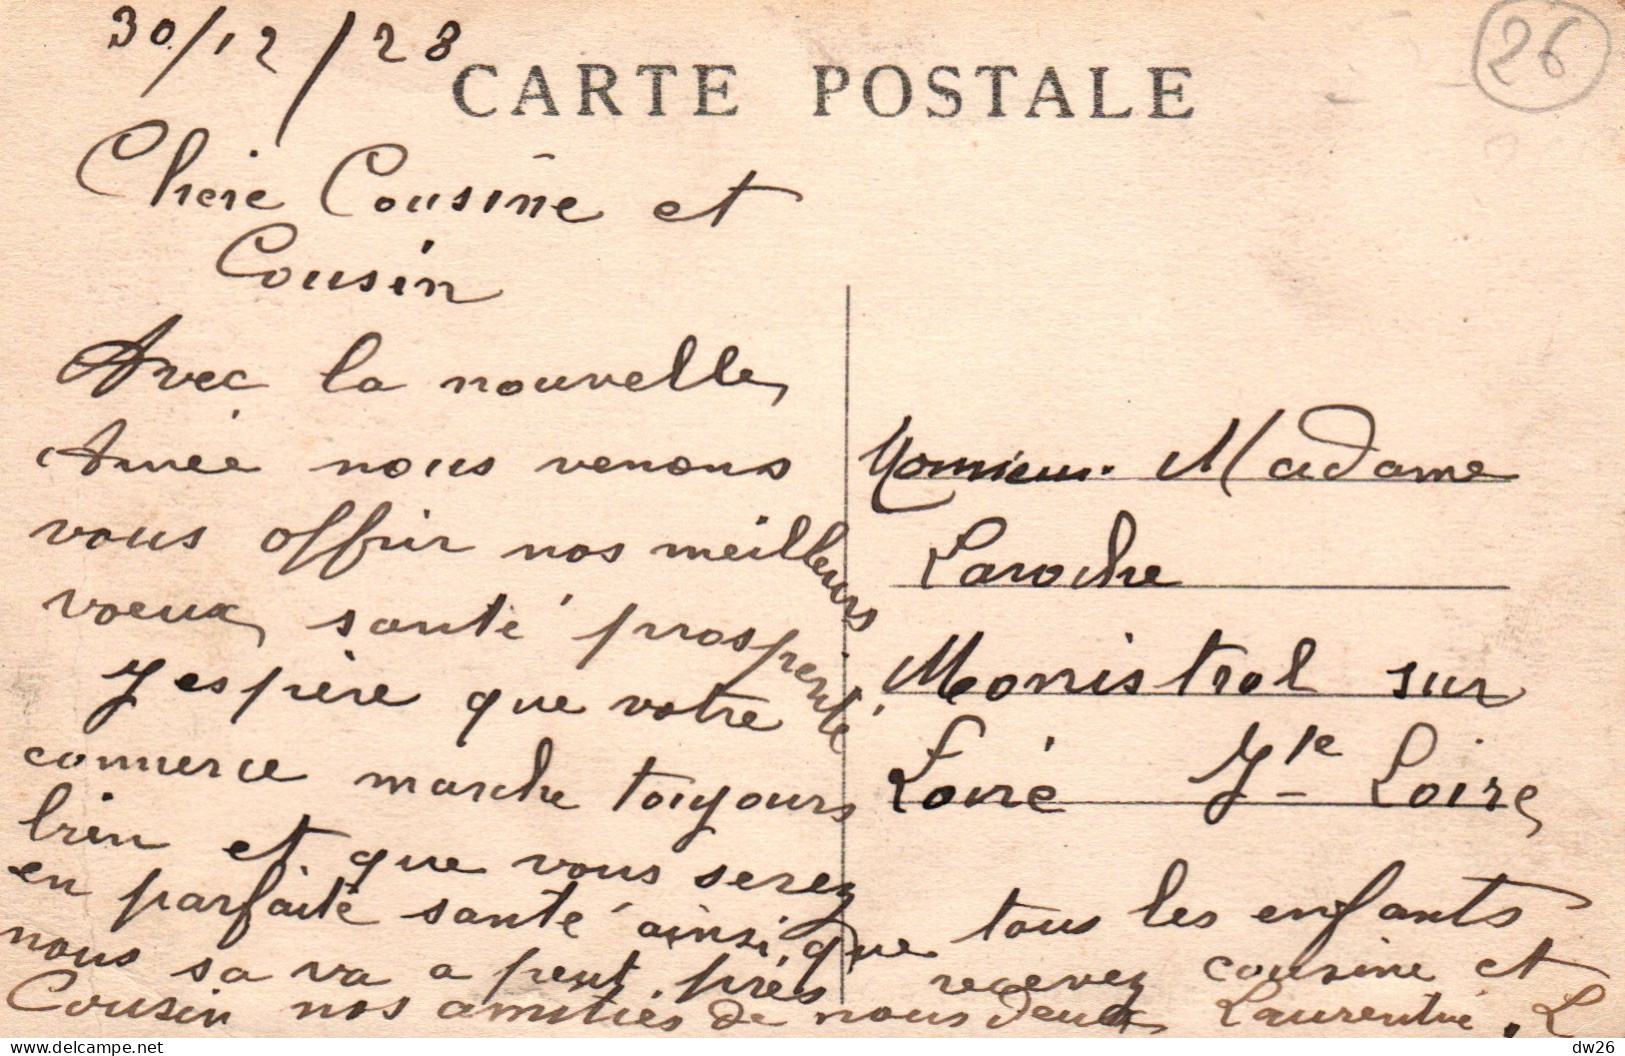 30/12/28
26
CARTE POSTALE
Chere Cousine et
Cousin
Avec la nouvelle
Année nous venons
vous offrir nos meilleurs
voeux, santé prosperité
J espère que votre
commerce marche toujours
bien et que vous serez
en parfaite santé ainsi que tous les enfants
nous sa va a peut près recevez cousine et
Cousin nos amitiés de nous deux Laurentine. L
Monsieur Madame
Laroche
Monistrol sur
Loire Hte Loire
dw26